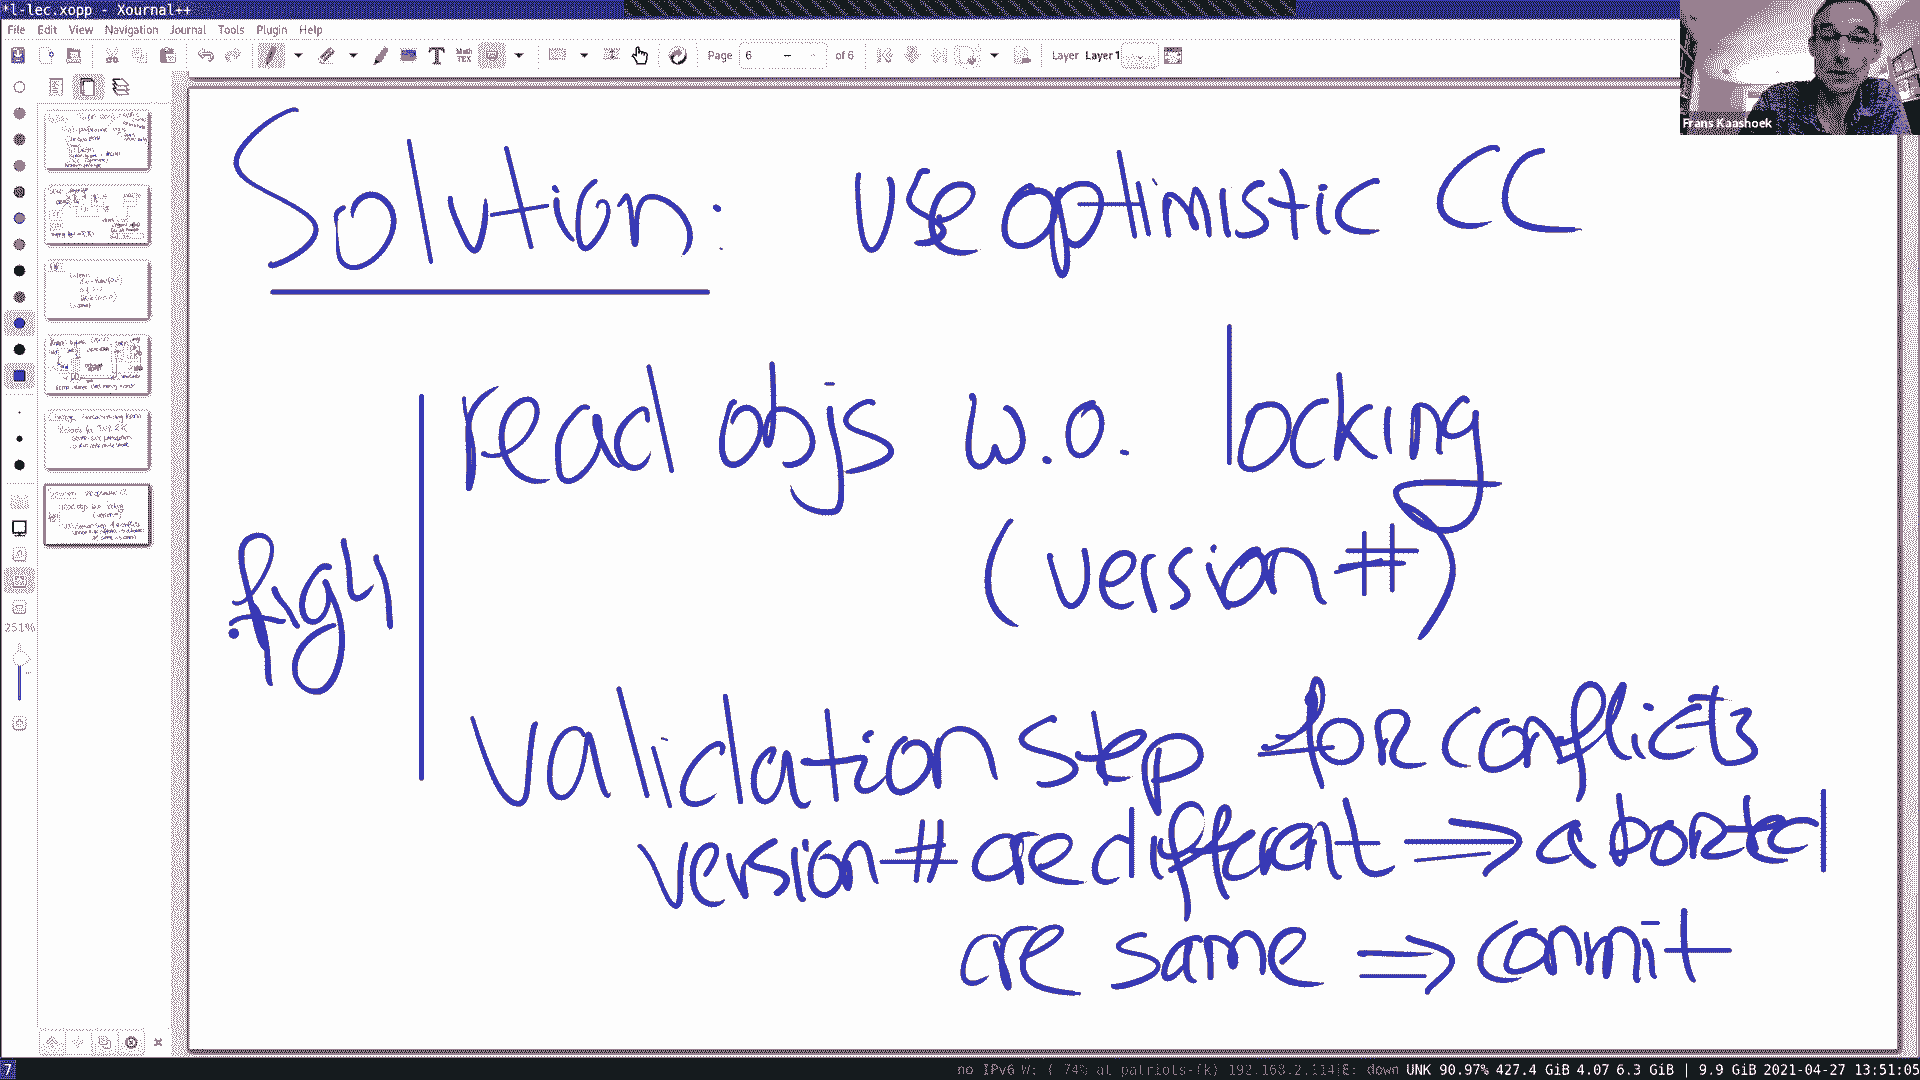 *l-lec.xopp - Xournal++
File Edit View Navigation Journal Tools Plugin Help
Page 6 of 6 Layer Layer 1
Frans Kaashoek
Solution: use optimistic CC
read objs w.o. locking
(version #)
fig 4
validation step for conflicts
version # are different ⇒ aborted
are same ⇒ commit
251%
7 no IPv6 W: ( 74% at patriots-fk) 192.168.2.114 E: down UNK 90.97% 427.4 GiB 4.07 6.3 GiB | 9.9 GiB 2021-04-27 13:51:05